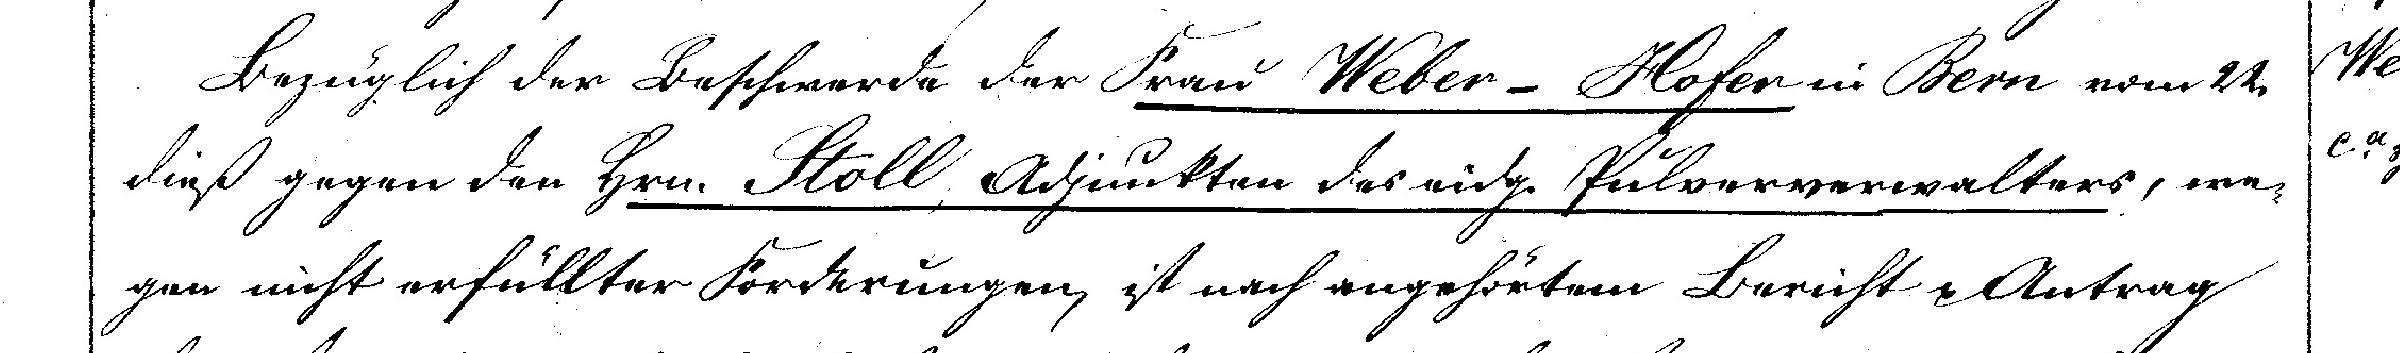 Bezüglich der Beschwerde der Frau Weber-Hofer in Bern vom 22.
dieß gegen den Hrn. Stoll, Adjunkten des eidg. Pulververwalters, we-
gen nicht erfüllter Forderungen, ist nach angehörtem Bericht & Antrag
We
ca